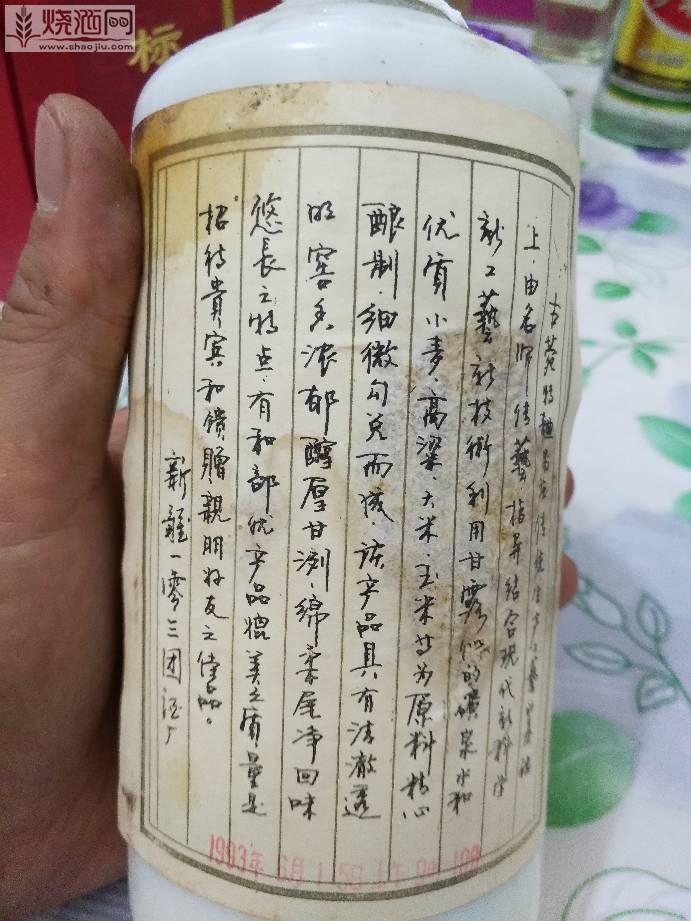 烧酒网
www.shaojiu.com
标
古苑特曲是在传统生产工艺基础
上,由名师传艺指导结合现代新科学
新工藝新技術利用甘露 的礦泉水和
优質小麦、高粱、大米、玉米等为原料精心
酿制,细微勾兑而成,该产品具有清澈透
明窖香浓郁醇厚甘洌,绵柔尾净回味
悠長之特点,有和部优产品媲美之質量是
招待貴宾和馈贈親朋好友之佳品。
新疆一零三团酒厂
1993年6月15日